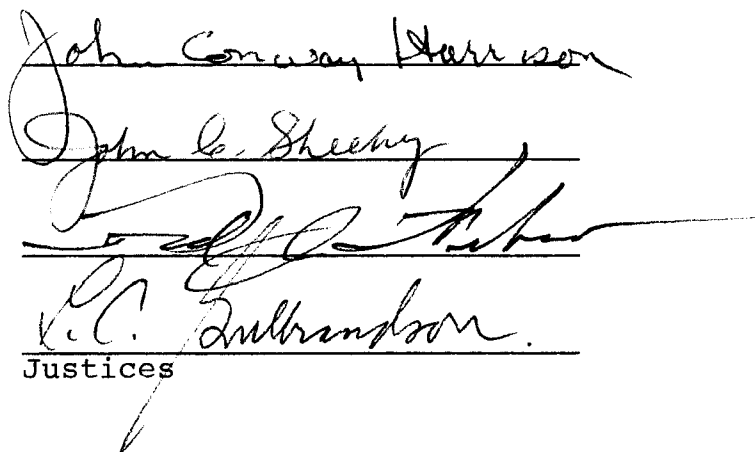 John Conway Harrison
John C. Sheehy
L.C. Gulbrandson.
Justices